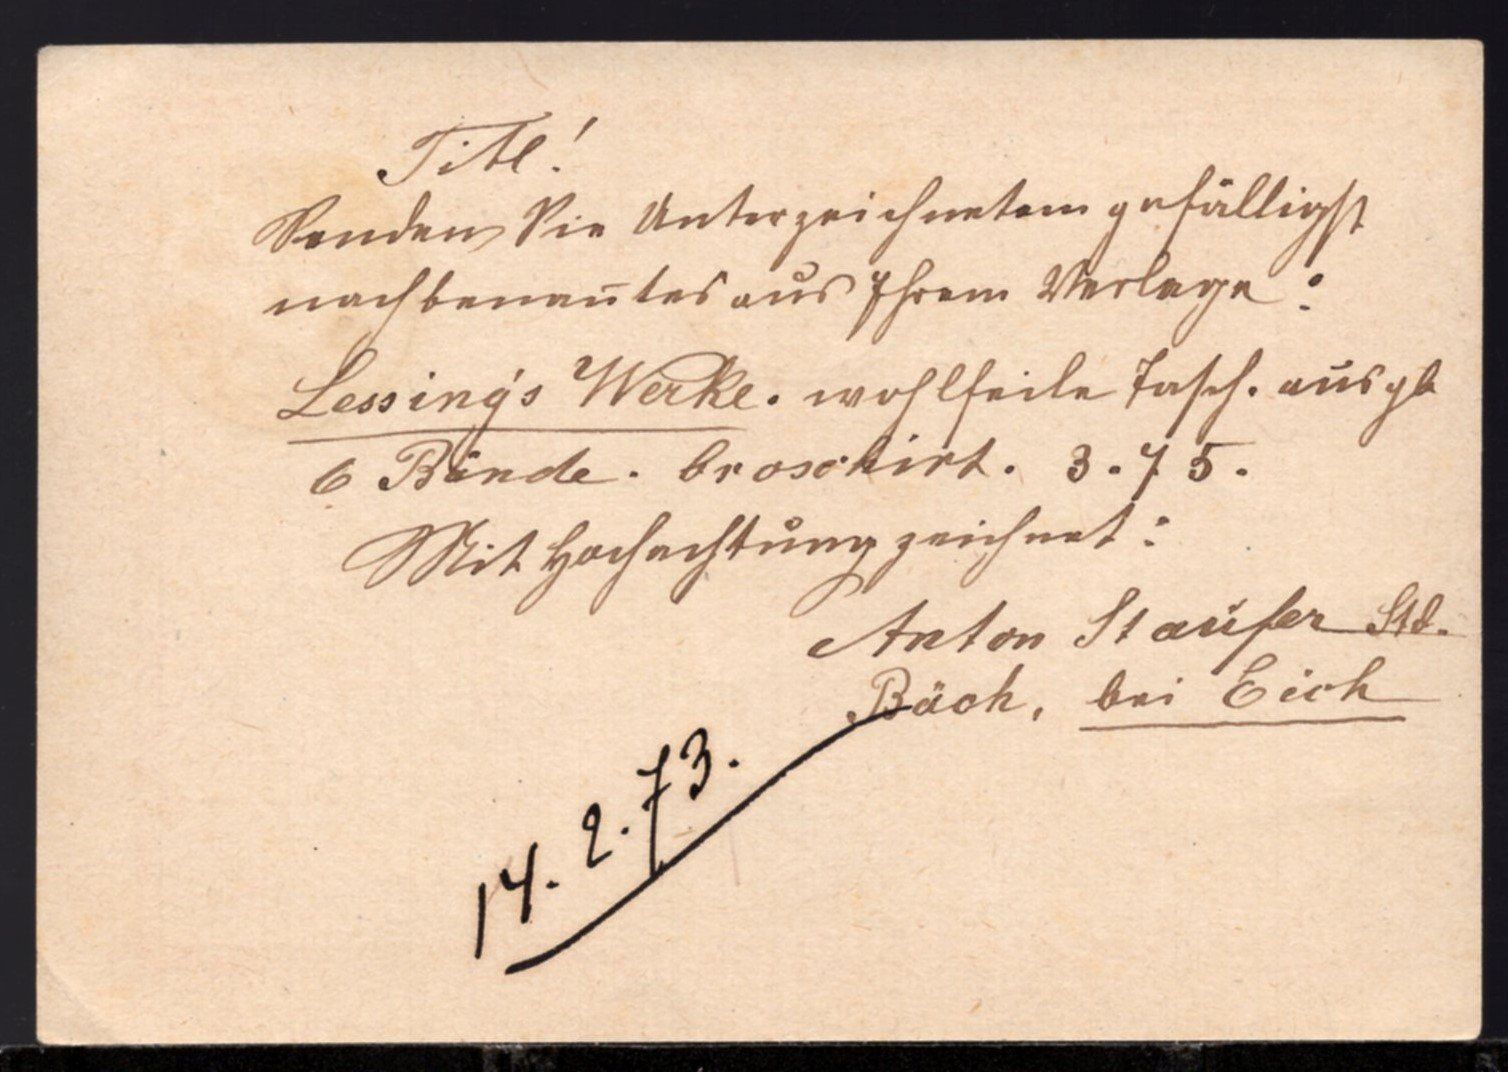 Titl!
Senden Sie Unterzeichnetem gefälligst
nachbenan̄tes aus Ihrem Verlage:
Lessing's Werke. wohlfeile Tasch. ausgb
6 Bände. broschirt. 3.75.
Mit Hochachtung zeichnet:
Anton Staufer Std.
Bäch, bei Eich
14. 2. 73.